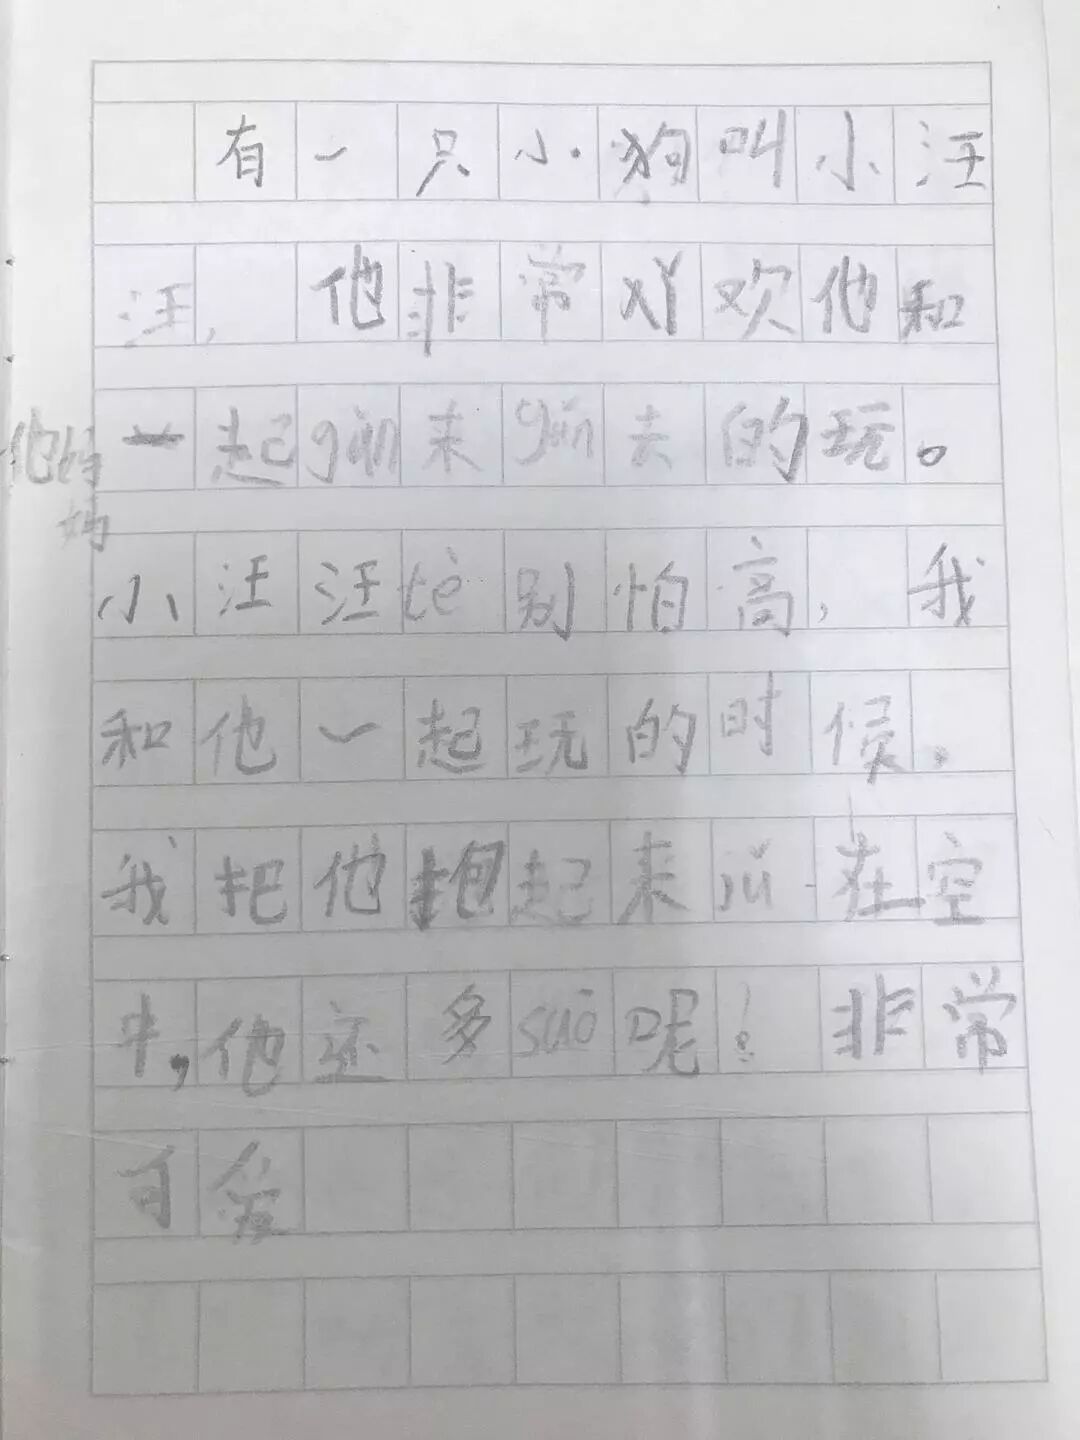 有一只小狗叫小汪
汪,他非常欢他和
他的妈妈一起gǔn来gǔn去的玩。
小汪汪tè别怕高,我
和他一起玩的时候,
我把他抱起来jǔ在空
中,他还多suō呢!非常
可爱